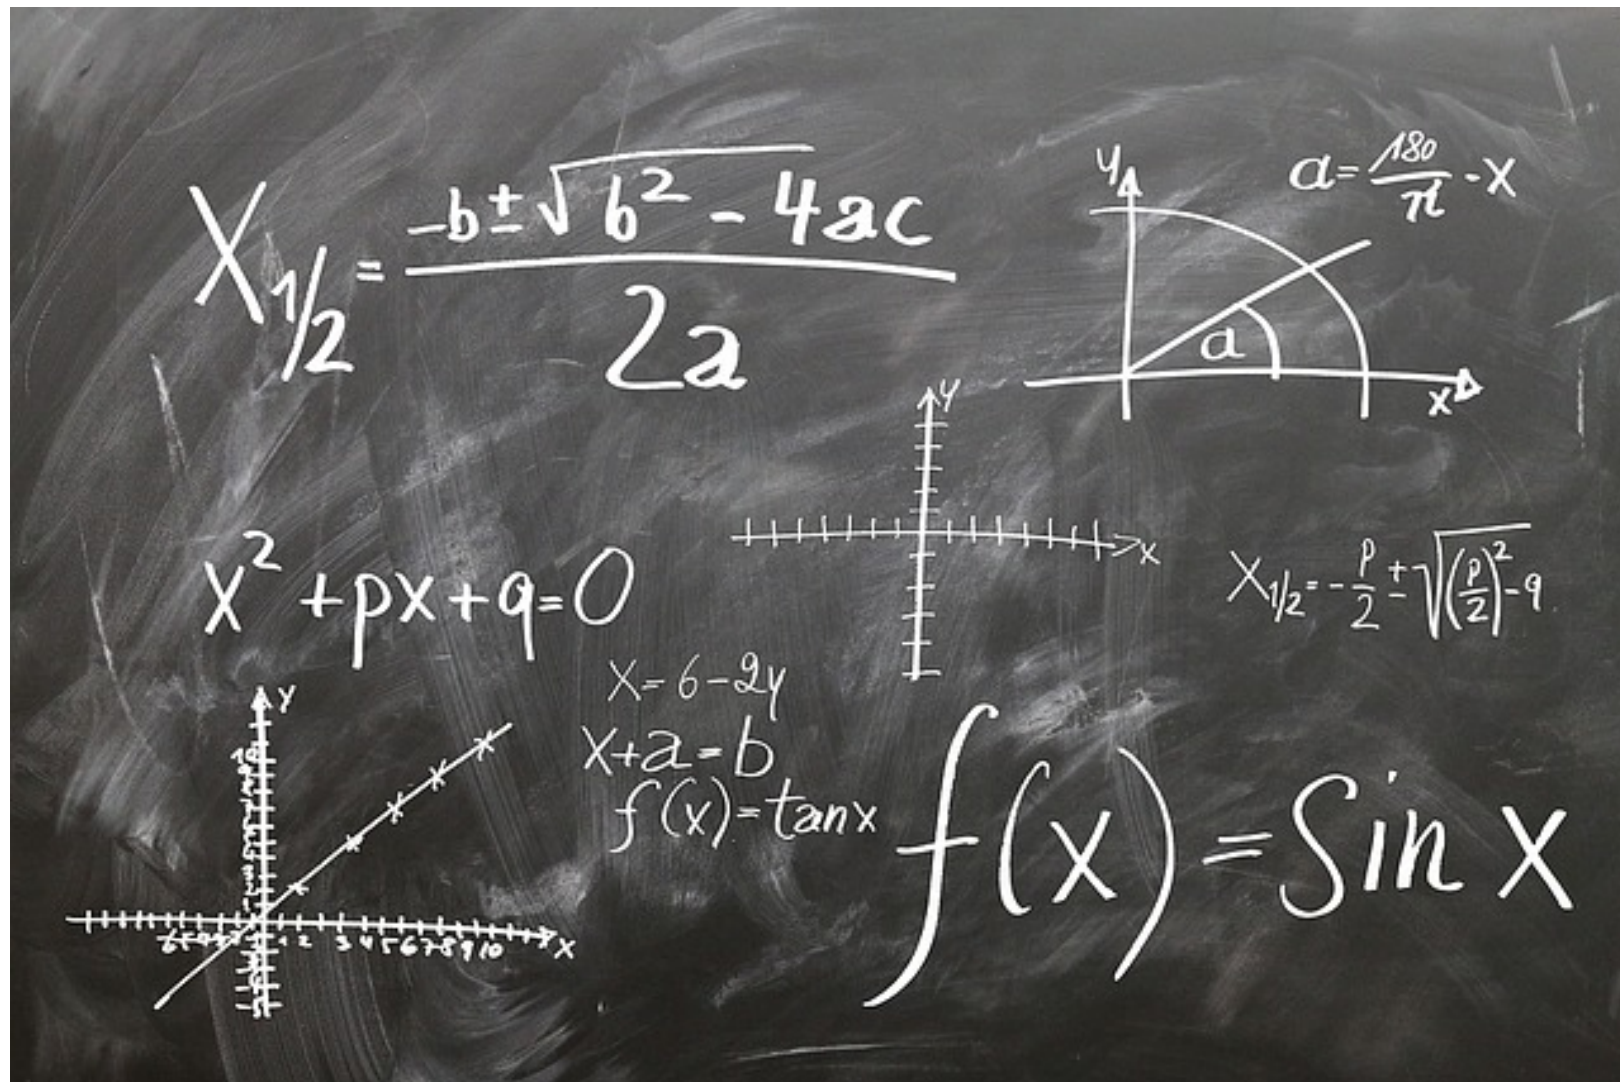 X1/2 = -b ± √b² - 4ac / 2a
y
a = 180/π - x
a
x
y
x
x² + px + q = 0
X1/2 = - p/2 ± √(p/2)² - q
x = 6 - 2y
x + a = b
f(x) = tan x
f(x) = sin x
y
1 2 3 4 5 6 7 8 9 10 x